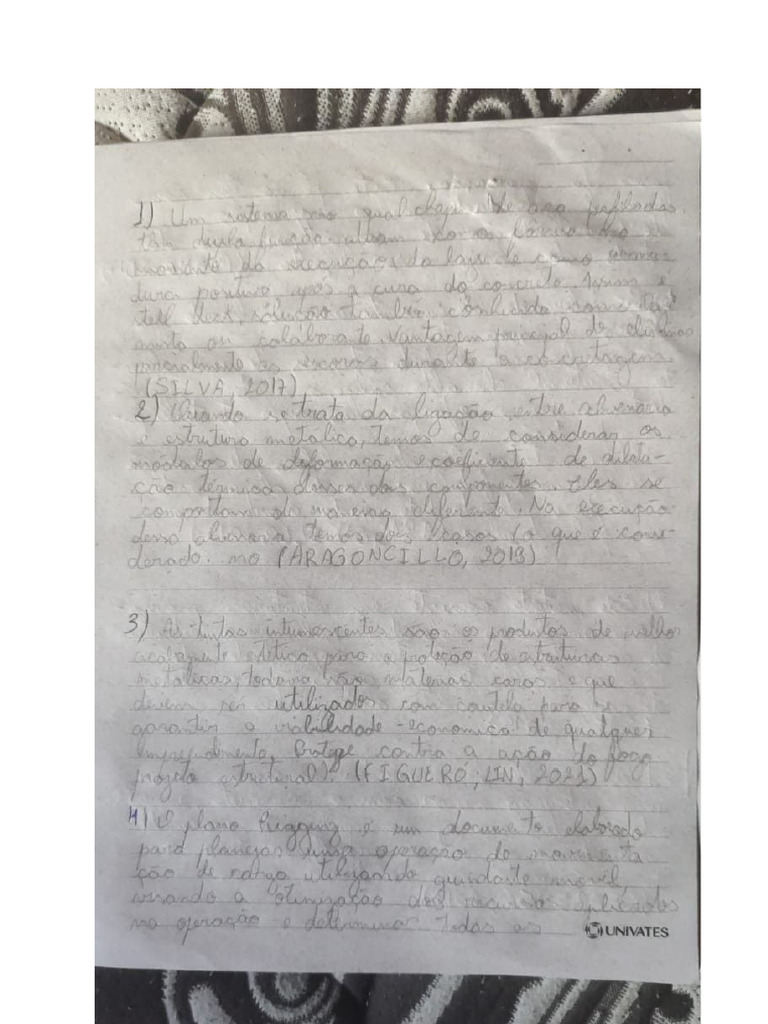 1) Um sistema no qual chapas de aço perfiladas
têm dupla função: atuam como
momento da execução da laje e como arma-
dura positiva após a cura do concreto.
deck, solução também conhecida como laje
mista ou colaborante. Vantagem principal de elimina
parcialmente as escoras durante a concretagem
(SILVA, 2017)
2) Quando se trata da ligação entre alvenaria
e estrutura metálica, temos de considerar os
módulos de deformação e coeficiente de dilata-
ção térmica desses dois componentes. Eles se
comportam de maneira diferente. Na execução
dessa alvenaria temos dois casos (o que é consi-
derado. no (ARAGONCILLO, 2019)
3) As tintas intumescentes são os produtos de melhor
acabamento estético para a proteção de estruturas
metálicas, todavia são materiais caros e que
devem ser utilizados com cautela para se
garantir a viabilidade econômica de qualquer
empreendimento. Protege contra a ação do fogo
projeto estrutural). (FIGUERÓ; LIN, 2021)
4) O plano Rigging é um documento elaborado
para planejar uma operação de movimenta
ção de carga utilizando guindaste móvel,
visando a otimização dos recursos aplicados
na operação e determinar todas as
UNIVATES